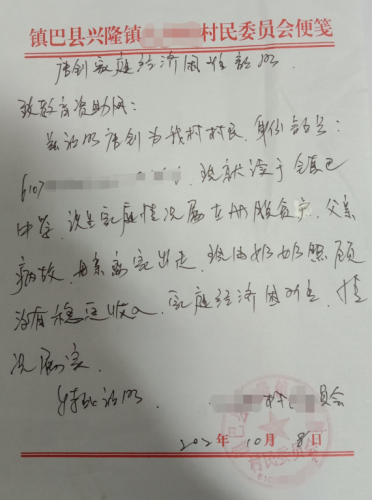 镇巴县兴隆镇 村民委员会便笺
唐创家庭经济困难证明
致教育资助网：
兹证明唐创为我村村民，身份证号：
6107 ，现就读于镇巴
中学，该生家庭情况属在册脱贫户，父亲
病故，母亲离家出走，现由奶奶照顾
没有稳定收入，家庭经济困难，情
况属实。
特此证明
村 员会
202 年 10月 8日
村民委员会